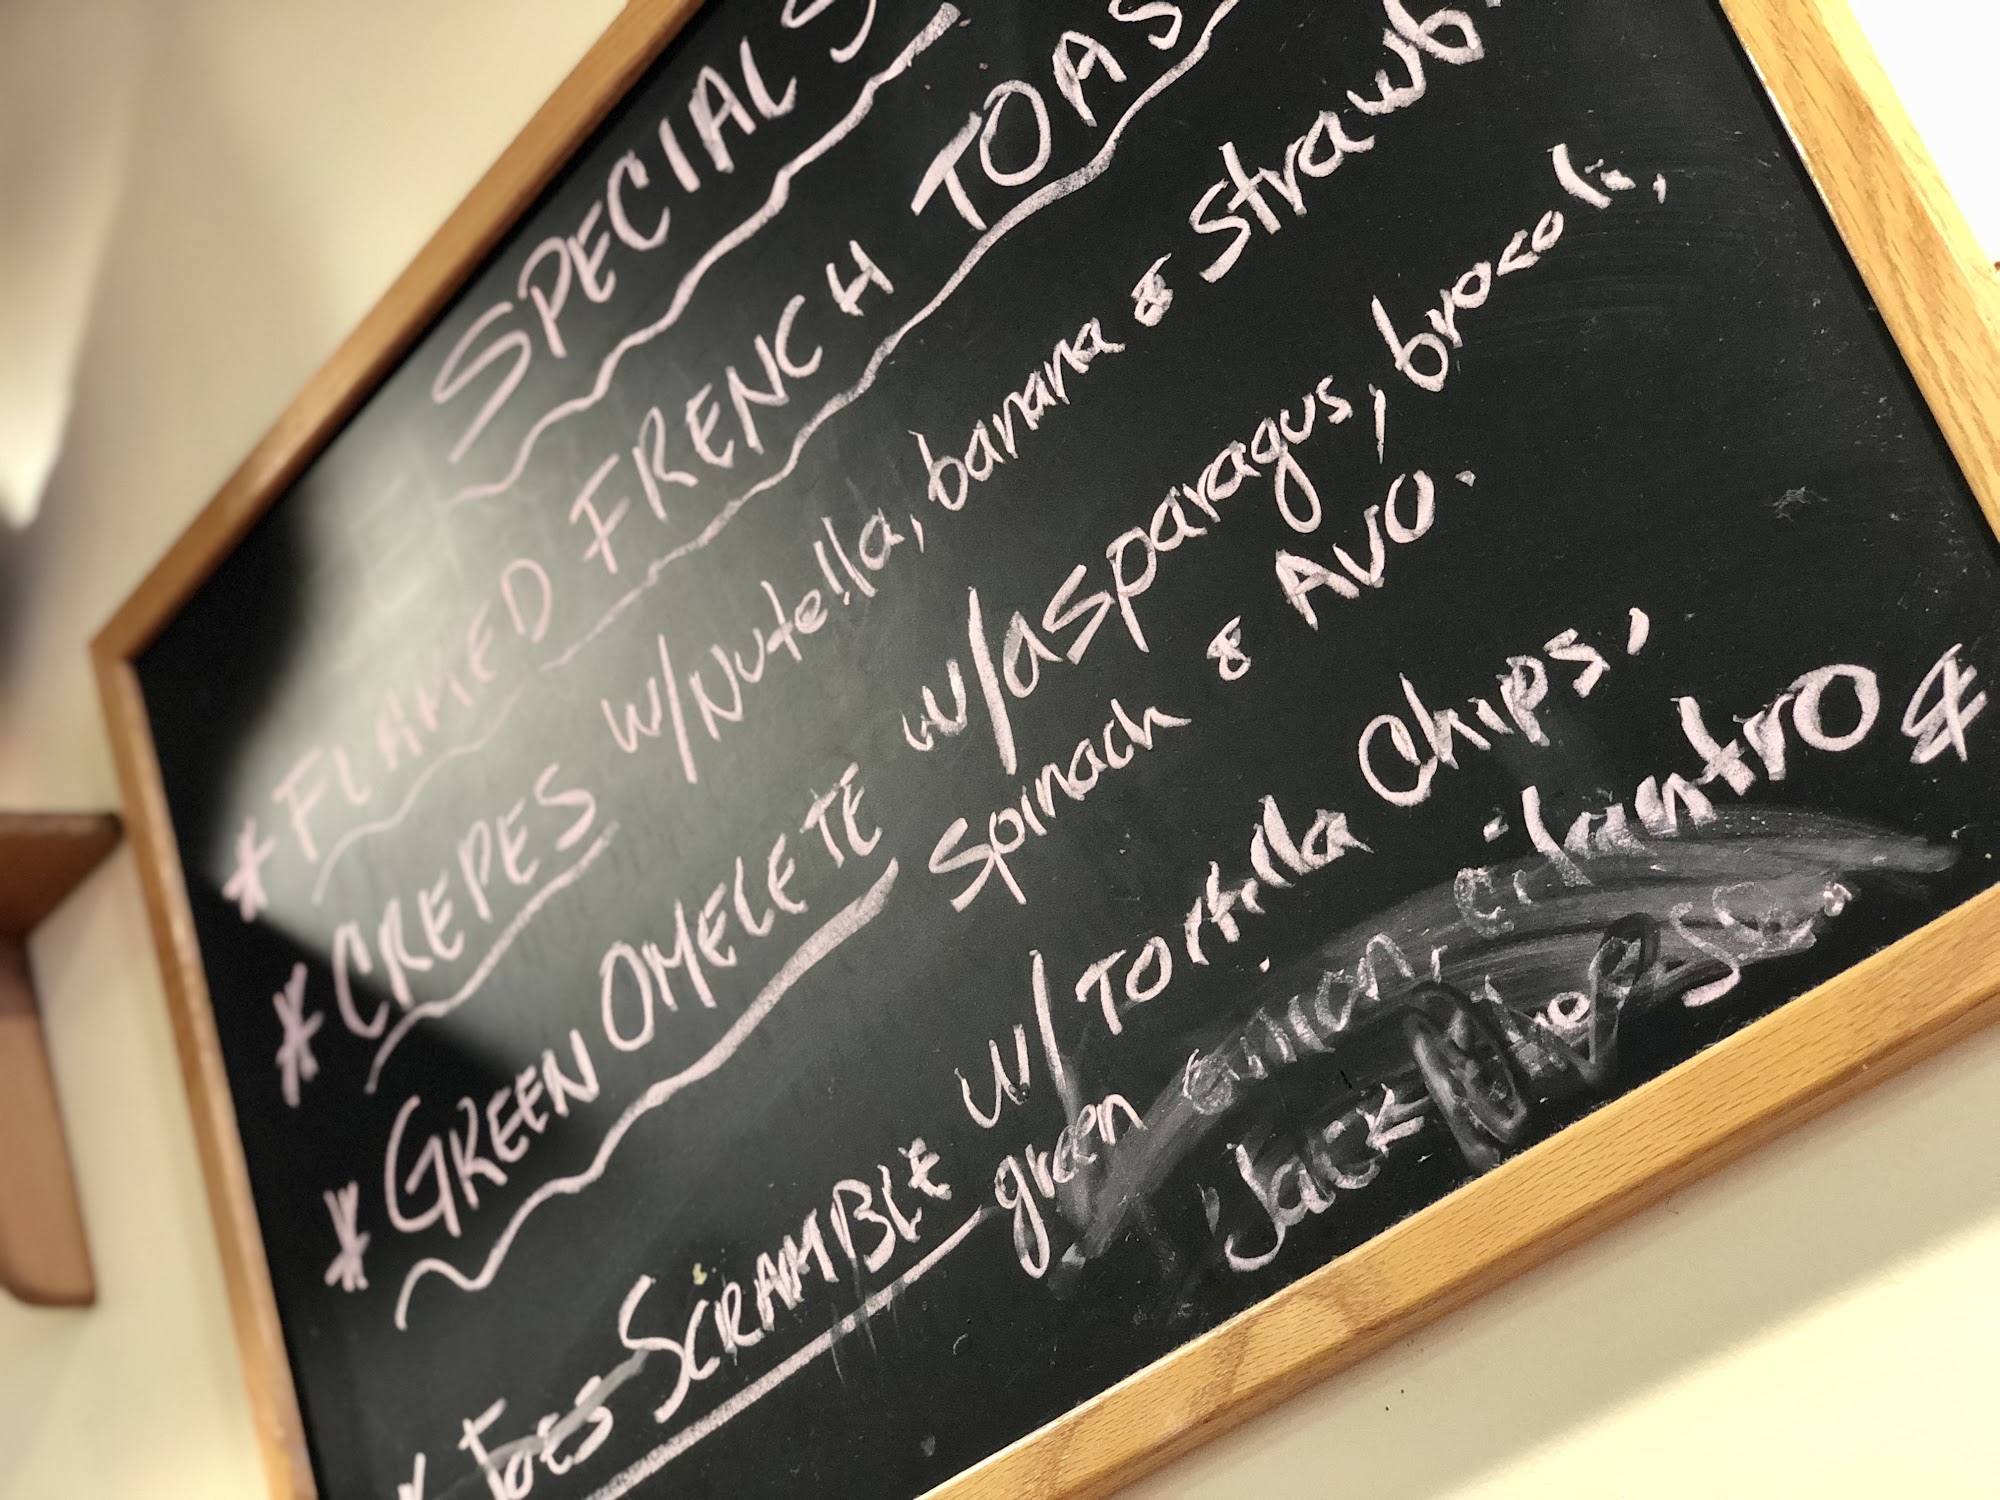 SPECIALS
* FLAMED FRENCH TOAS
* CREPES w/Nutella, banana & Strawb
* GREEN OMELETE w/asparagus, brocoli,
Spinach & AVO.
* JOES SCRAMBLE w/ Tortilla Chips,
green onion, cilantro &
Jack cheese.